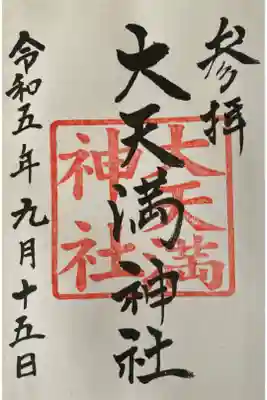 参拝
大天満神社
大天満
神社
令和五年九月十五日